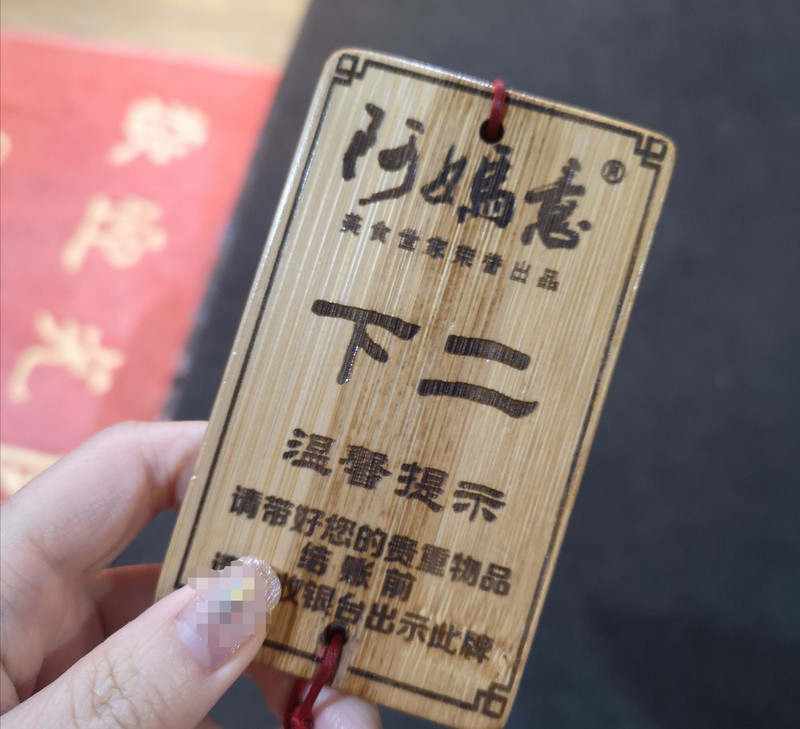 阿嬷意®
美食世家荣誉出品
下二
温馨提示
请带好您的贵重物品
结账前
收银台出示此牌